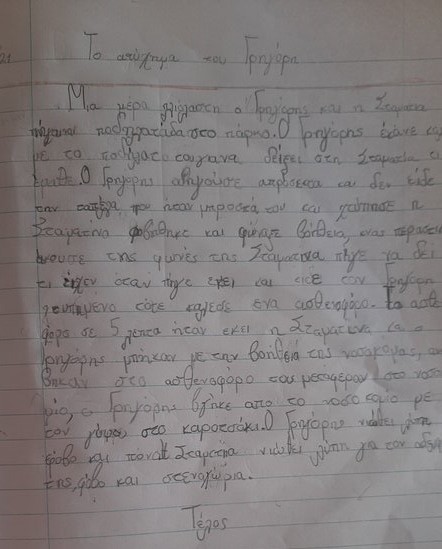 Το ατύχημα του Γρηγόρη
Μια μέρα ο Γρηγόρης και η Σταματι
ποδηλατάδα στο πάρκο. Ο Γρηγόρης έκανε
με το ποδήλατο δείξει στη Σταματία τι
έμαθε. Ο Γρηγόρης απρόσεχτα και δεν είδε
την που ήταν μπροστά του και χτύπησε η
Σταματινα φοβήθηκε και φώναξε βοήθεια, ενας
άκουσε της φωνές της Σταματινα πήγε να δει
τι όταν πήγε εκεί και είδε τον Γρηγόρη
χτυπημένο τότε κάλεσε ένα ασθενοφόρο. Το ασθε
φόρο σε 5 λεπτα ήταν εκει η Σταματινα και ο
Γρηγόρης μπήκαν με την βοήθεια της νοσοκόμας,
στο ασθενοφόρο τους μετέφεραν στο νοσο
μιο, ο Γρηγόρης βγήκε απο το νοσοκομιο με
τον γύψο, στο καροτσάκι. Ο Γρηγόρης νιώθει λύπη
φόβο και Σταματινα νιώθει λύπη για τον
της, φόβο και στεναχώρια.
Τέλος